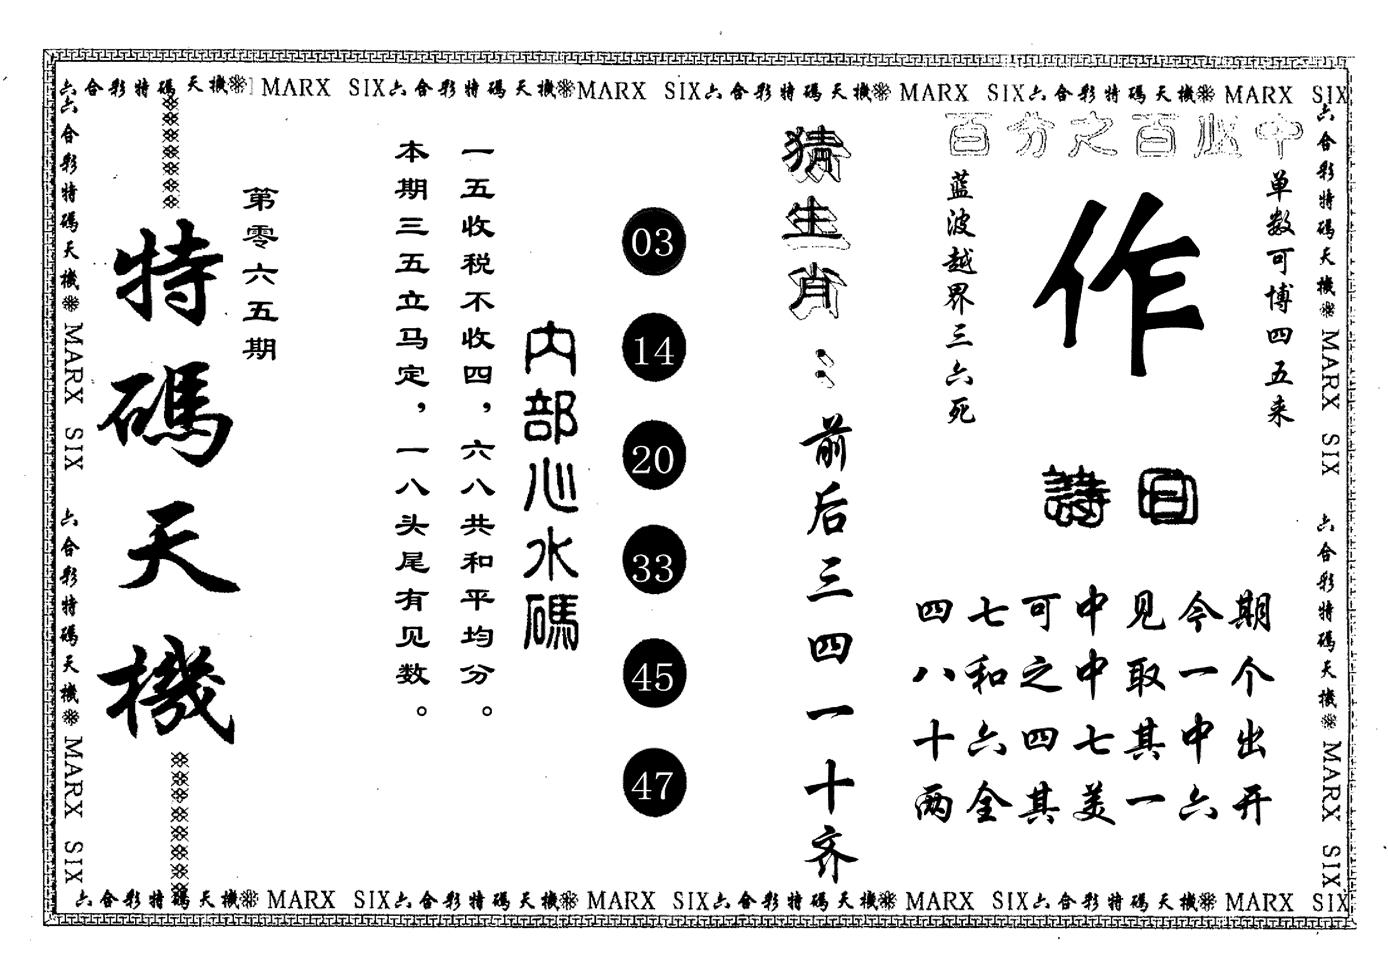 六合彩特碼天機 MARX SIX六合彩特碼天機MARX SIX六合彩特碼天機 MARX SIX六合彩特碼天機 MARX SIX
六合彩特碼天機 MARX SIX 六合彩特碼天機 MARX SIX
特碼天機
第零六五期
一五收税不收四，六八共和平均分。
本期三五立马定，一八头尾有见数。
内部心水碼
03
14
20
33
45
47
猜生肖：前后三四一十齐
百分之百必中
单数可博四五来
作
蓝波越界三六死
詩曰
四七可中见今期
八和之中取一个
十六四七其中出
两全其美一六开
六合彩特碼天機 MARX SIX 六合彩特碼天機 MARX SIX
六合彩特碼天機 MARX SIX六合彩特碼天機 MARX SIX六合彩特碼天機 MARX SIX六合彩特碼天機 MARX SIX